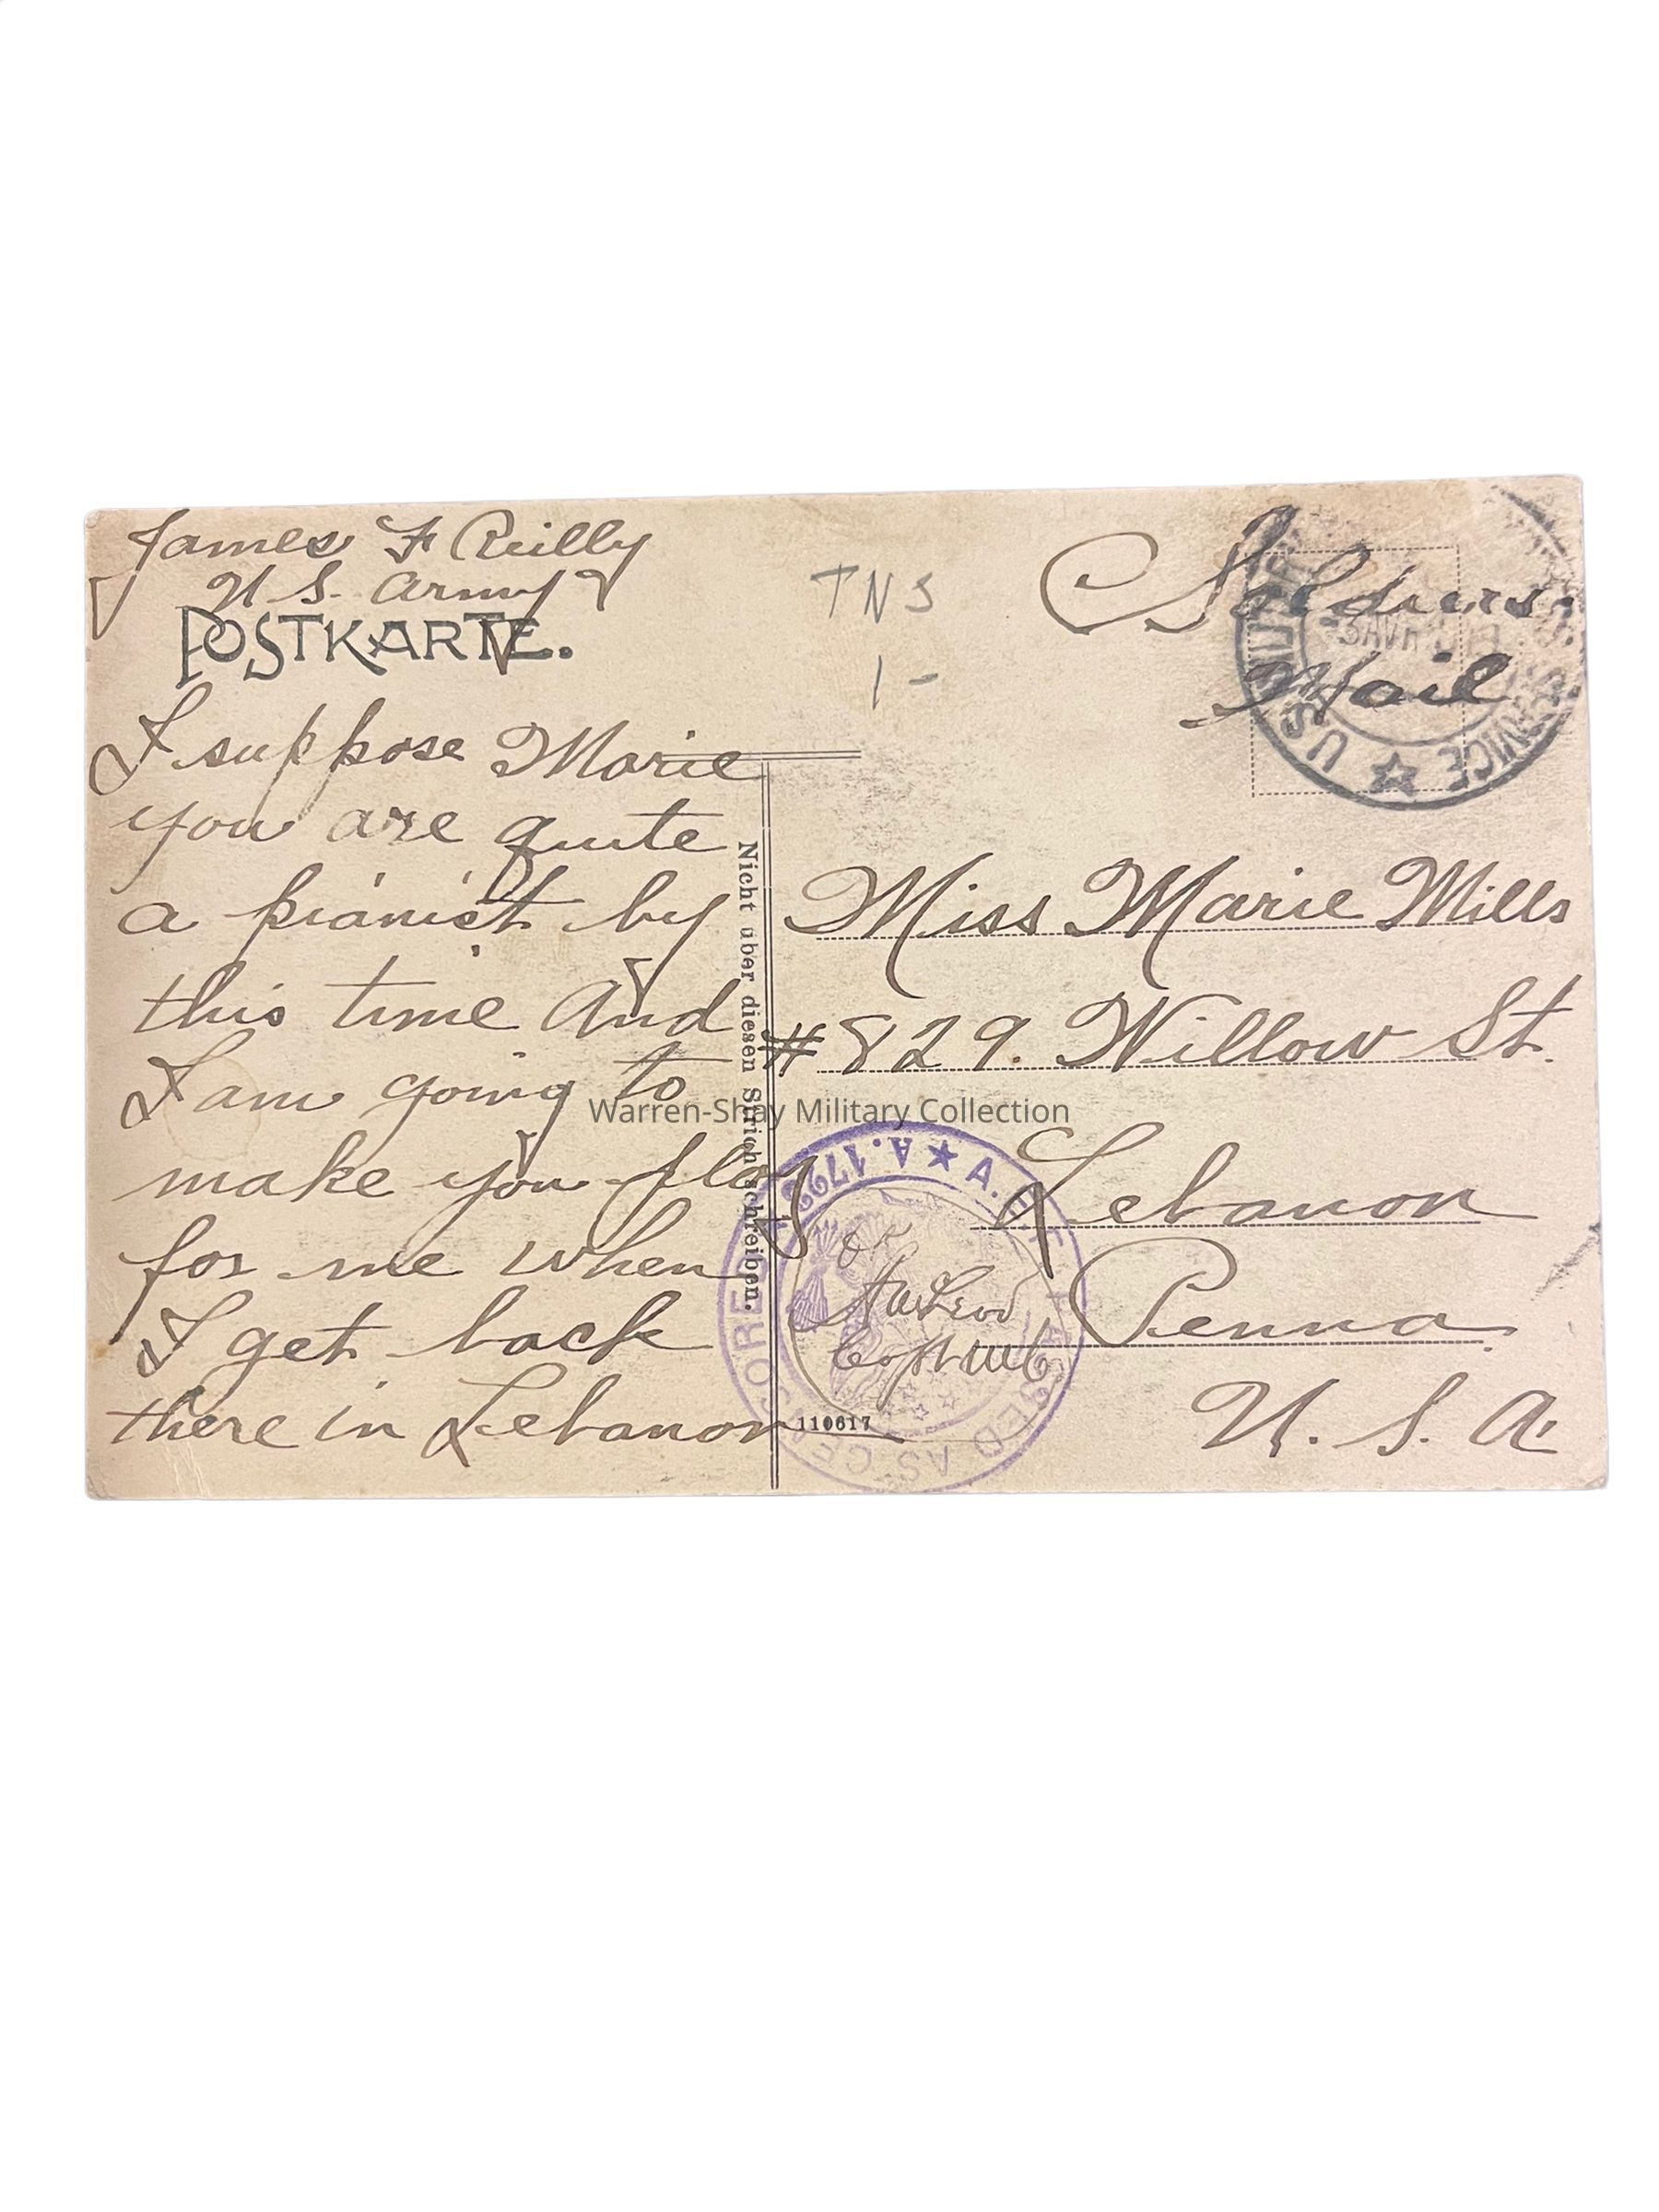 James F Reilly
U S. Army
POSTKARTE.
I suppose Marie
you are quite
a pianist by
this time And
I am going to
make you play
for me when
I get back
there in Lebanon
Nicht über diesen Strich schreiben.
TNS
1-
Soldiers.
Mail
U.S. MILITARY SERVICE
Miss Marie Mills
#829. Willow St.
Lebanon
Penna.
U. S. A.
A.E.F. PASSED AS CENSORED A.1798
OK
Capt
110617
Warren-Shay Military Collection